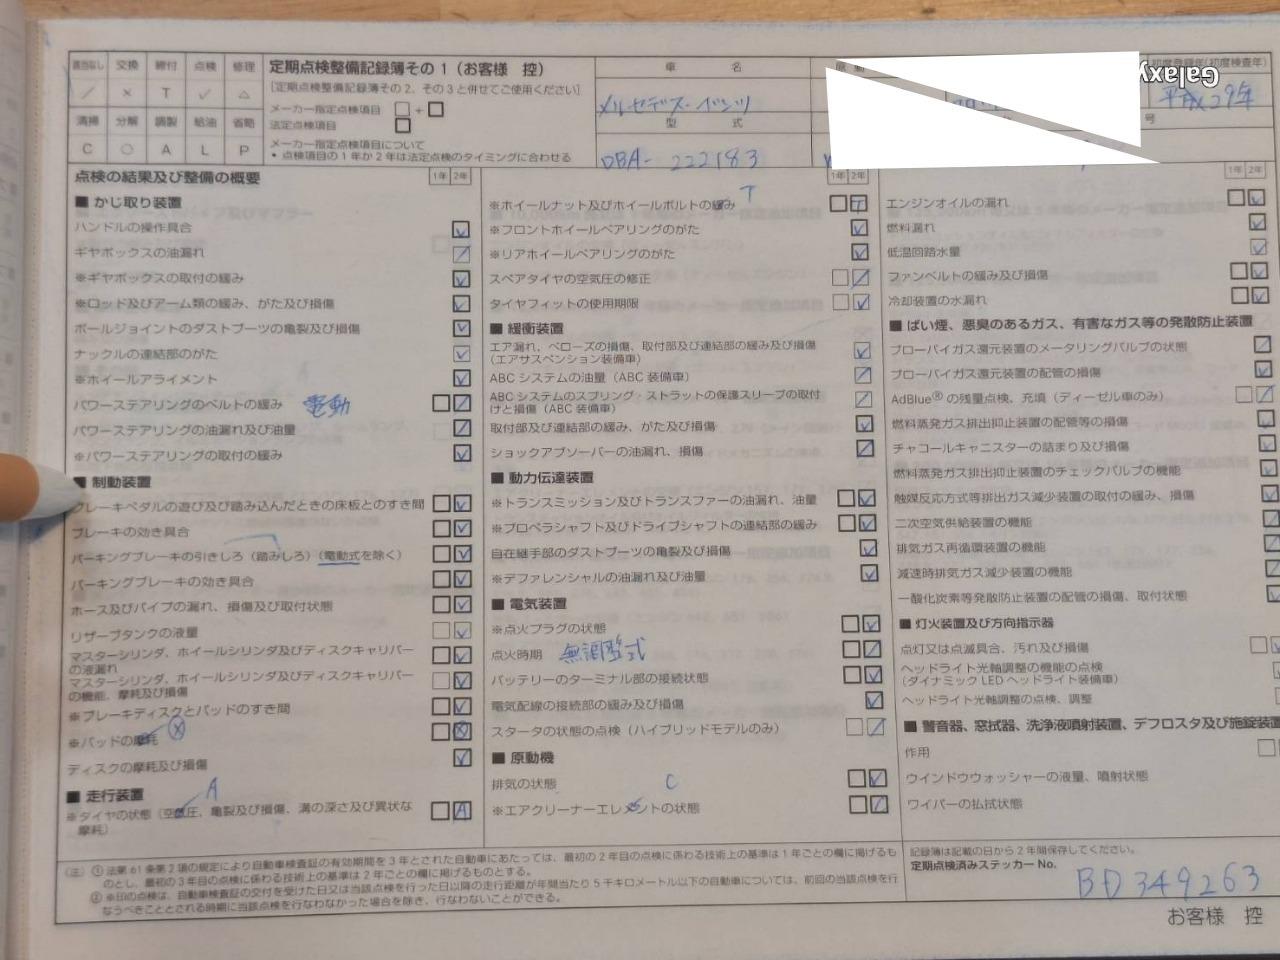 該当なし 交換 締付 点検 修理
／ × T ✓ △
清掃 分解 調製 給油 省略
C ○ A L P
定期点検整備記録簿その1（お客様 控）
［定期点検整備記録簿その2、その3と併せてご使用ください］
メーカー指定点検項目 □＋□
法定点検項目 □
メーカー指定点検項目について
• 点検項目の1年か2年は法定点検のタイミングに合わせる
車 名
メルセデス・ベンツ
型 式
DBA- 222183
初度登録年(初度検査年)
平成29年
号
Galaxy
点検の結果及び整備の概要
1年 2年
■ かじ取り装置
ハンドルの操作具合
ギヤボックスの油漏れ
※ギヤボックスの取付の緩み
※ロッド及びアーム類の緩み、がた及び損傷
ボールジョイントのダストブーツの亀裂及び損傷
ナックルの連結部のがた
※ホイールアライメント
パワーステアリングのベルトの緩み 電動
パワーステアリングの油漏れ及び油量
※パワーステアリングの取付の緩み
■ 制動装置
ブレーキペダルの遊び及び踏み込んだときの床板とのすき間
ブレーキの効き具合
パーキングブレーキの引きしろ（踏みしろ）（電動式を除く）
パーキングブレーキの効き具合
ホース及びパイプの漏れ、損傷及び取付状態
リザーブタンクの液量
マスターシリンダ、ホイールシリンダ及びディスクキャリパー
の液漏れ
マスターシリンダ、ホイールシリンダ及びディスクキャリパー
の機能、摩耗及び損傷
※ブレーキディスクとパッドのすき間
※パッドの摩耗
ディスクの摩耗及び損傷
■ 走行装置
A
※タイヤの状態（空気圧、亀裂及び損傷、溝の深さ及び異状な A
摩耗）
1年 2年
T
※ホイールナット及びホイールボルトの緩み T
※フロントホイールベアリングのがた
※リアホイールベアリングのがた
スペアタイヤの空気圧の修正
タイヤフィットの使用期限
■ 緩衝装置
エア漏れ、ベローズの損傷、取付部及び連結部の緩み及び損傷
（エアサスペンション装備車）
ABC システムの油量（ABC 装備車）
ABC システムのスプリング・ストラットの保護スリーブの取付
けと損傷（ABC 装備車）
取付部及び連結部の緩み、がた及び損傷
ショックアブソーバーの油漏れ、損傷
■ 動力伝達装置
※トランスミッション及びトランスファーの油漏れ、油量
※プロペラシャフト及びドライブシャフトの連結部の緩み
自在継手部のダストブーツの亀裂及び損傷
※デファレンシャルの油漏れ及び油量
■ 電気装置
※点火プラグの状態
点火時期 無調整式
バッテリーのターミナル部の接続状態
電気配線の接続部の緩み及び損傷
スタータの状態の点検（ハイブリッドモデルのみ）
■ 原動機
排気の状態
C
※エアクリーナーエレメントの状態
1年 2年
エンジンオイルの漏れ
燃料漏れ
低温回路水量
ファンベルトの緩み及び損傷
冷却装置の水漏れ
■ ばい煙、悪臭のあるガス、有害なガス等の発散防止装置
ブローバイガス還元装置のメータリングバルブの状態
ブローバイガス還元装置の配管の損傷
AdBlue®の残量点検、充填（ディーゼル車のみ）
燃料蒸発ガス排出抑止装置の配管等の損傷
チャコールキャニスターの詰まり及び損傷
燃料蒸発ガス排出抑止装置のチェックバルブの機能
触媒反応方式等排出ガス減少装置の取付の緩み、損傷
二次空気供給装置の機能
排気ガス再循環装置の機能
減速時排気ガス減少装置の機能
一酸化炭素等発散防止装置の配管の損傷、取付状態
■ 灯火装置及び方向指示器
点灯又は点滅具合、汚れ及び損傷
ヘッドライト光軸調整の機能の点検
（ダイナミック LED ヘッドライト装備車）
ヘッドライト光軸調整の点検、調整
■ 警音器、窓拭器、洗浄液噴射装置、デフロスタ及び施錠装置
作用
ウインドウウォッシャーの液量、噴射状態
ワイパーの払拭状態
（注）① 法第 61 条第 2 項の規定により自動車検査証の有効期間を 3 年とされた自動車にあたっては、最初の 2 年目の点検に係わる技術上の基準は 1 年ごとの欄に掲げるも
のとし、最初の 3 年目の点検に係わる技術上の基準は 2 年ごとの欄に掲げるものとする。
② ※印の点検は、自動車検査証の交付を受けた日又は当該点検を行った日以降の走行距離が年間当たり 5 千キロメートル以下の自動車については、前回の当該点検を行
なうべきこととされる時期に当該点検を行なわなかった場合を除き、行なわないことができる。
記録簿は記載の日から 2 年間保存してください。
定期点検済みステッカー No.
BD349263
お客様 控